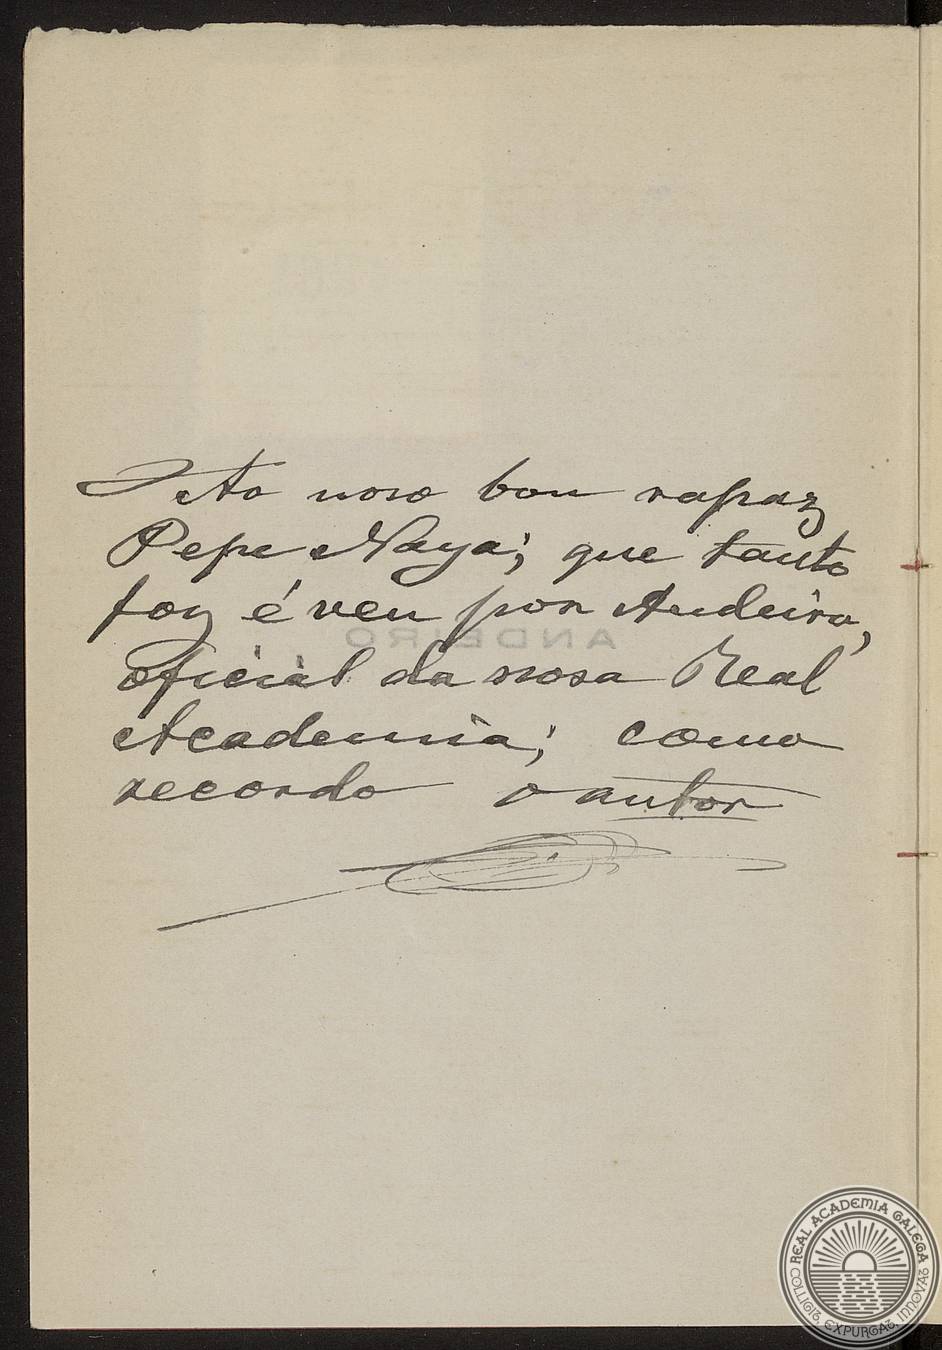 Ao noso bon rapaz
Pepe Naya; que tanto
foy é ven por Andeiro,
oficial da nosa Real
Academia; como
recordo o autor
ANDEIRO
REAL ACADEMIA GALEGA
COLLIGIT, EXPURGAT, INNOVAT